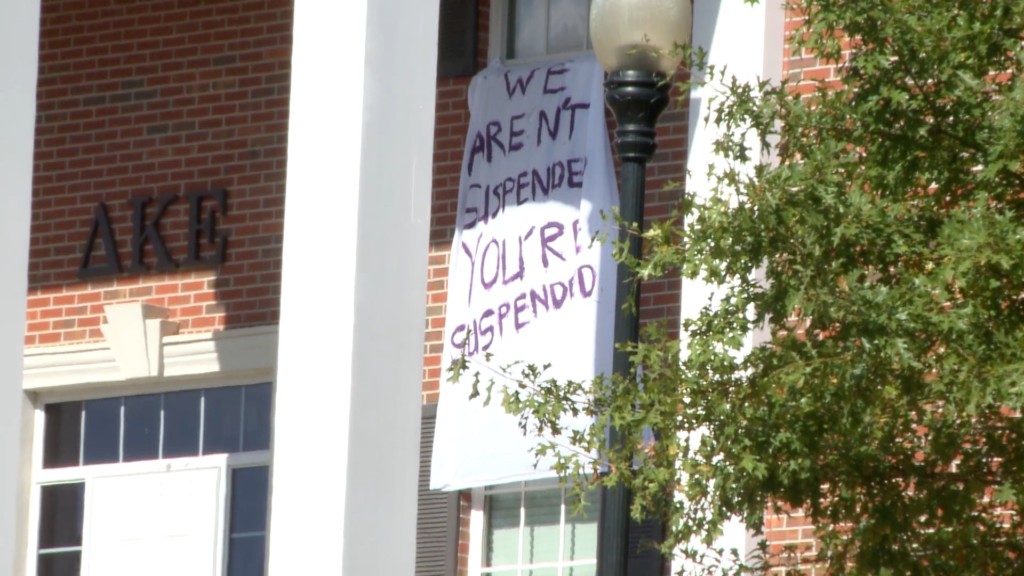 ΔKE
WE
AREN'T
SUSPENDE
YOU'RE
SUSPENDED